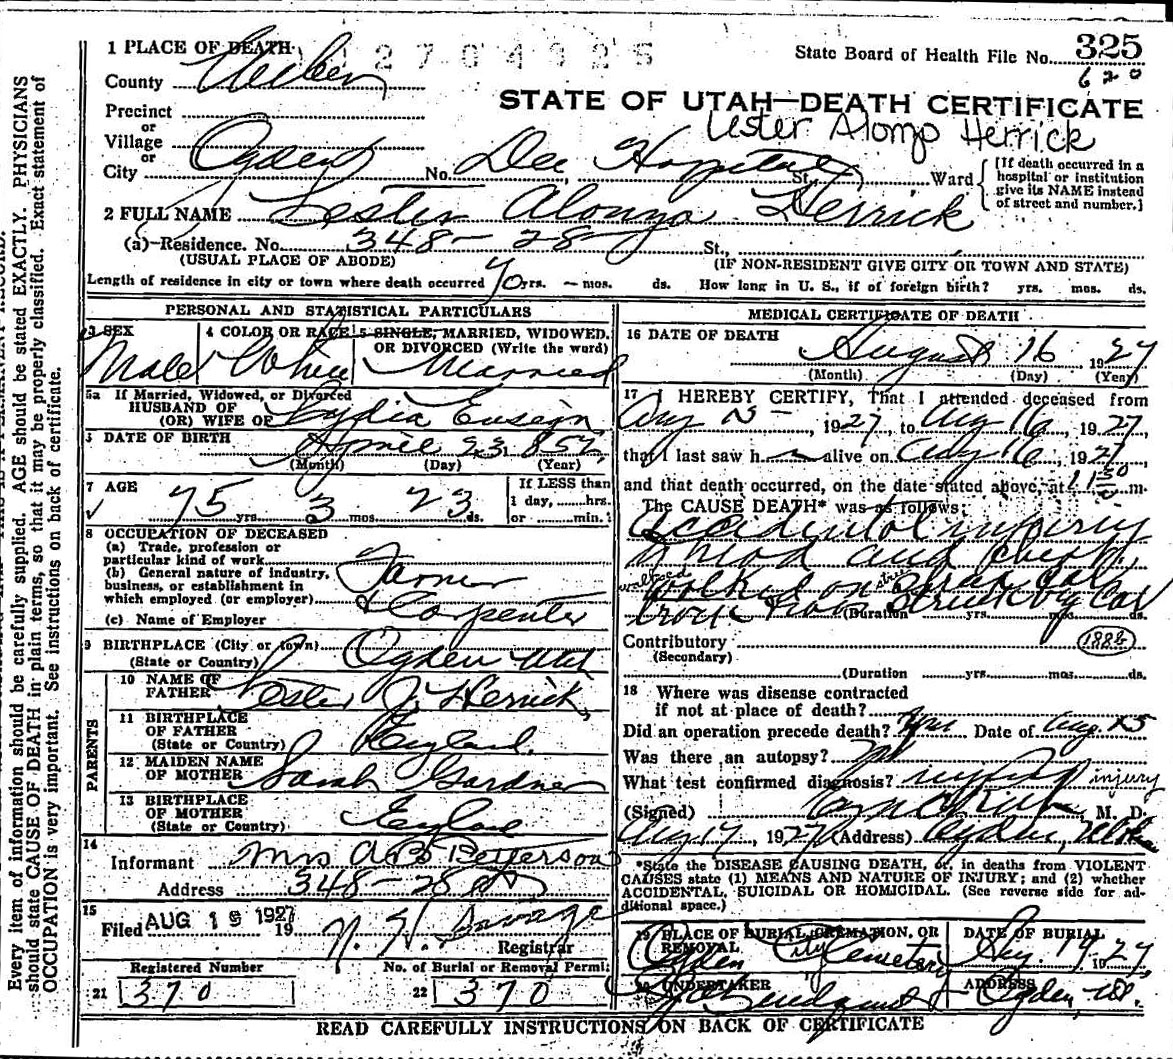 1 PLACE OF DEATH
2704325
State Board of Health File No. 325
620
County Weber
STATE OF UTAH—DEATH CERTIFICATE
Lester Alonzo Herrick
Precinct
or
Village
or
City Ogden No. Dee Hospital St., Ward
[If death occurred in a
hospital or institution
give its NAME instead
of street and number.]
2 FULL NAME Lester Alonzo Herrick
(a)—Residence. No. 348-28 St.,
(USUAL PLACE OF ABODE) (IF NON-RESIDENT GIVE CITY OR TOWN AND STATE)
Length of residence in city or town where death occurred yrs. — mos. ds. How long in U. S., if of foreign birth? yrs. mos. ds.
PERSONAL AND STATISTICAL PARTICULARS
3 SEX 4 COLOR OR RACE 5 SINGLE, MARRIED, WIDOWED,
OR DIVORCED (Write the word)
Male White Married
5a If Married, Widowed, or Divorced
HUSBAND OF
(OR) WIFE OF Lydia
DATE OF BIRTH April 23 1852
(Month) (Day) (Year)
7 AGE If LESS than
1 day, hrs.
75 yrs. 3 mos. 23 ds. or min.
8 OCCUPATION OF DECEASED
(a) Trade, profession or
particular kind of work
(b) General nature of industry,
business, or establishment in
which employed (or employer)
Farmer
& Carpenter
(c) Name of Employer
9 BIRTHPLACE (City or town)
(State or Country) Ogden Utah
PARENTS
10 NAME OF
FATHER Lester J. Herrick
11 BIRTHPLACE
OF FATHER
(State or Country) England.
12 MAIDEN NAME
OF MOTHER Sarah Gardner
13 BIRTHPLACE
OF MOTHER
(State or Country) England
14
Informant Mrs A B Petterson
Address 348-28 St
15
Filed AUG 19 1927 19 N. H. Savage
Registrar
Registered Number No. of Burial or Removal Permit
21 370 22 370
MEDICAL CERTIFICATE OF DEATH
16 DATE OF DEATH
August 16 1927
(Month) (Day) (Year)
17 I HEREBY CERTIFY, That I attended deceased from
Aug , 1927, to Aug 16, 1927,
that I last saw h alive on Aug 16, 1927
and that death occurred, on the date stated above, at 11 50 m.
The CAUSE DEATH* was as follows:
Accidental injury
head and chest,
walked on street car
track struck by car
(Duration yrs. mos. ds.
Contributory 188b
(Secondary)
(Duration yrs. mos. ds.
18 Where was disease contracted
if not at place of death?
Did an operation precede death? Date of Aug. 15
Was there an autopsy? No
What test confirmed diagnosis? injury
(Signed) M. D.
Aug 17, 1927 (Address) Ogden, Utah
*State the DISEASE CAUSING DEATH, or, in deaths from VIOLENT
CAUSES state (1) MEANS AND NATURE OF INJURY; and (2) whether
ACCIDENTAL, SUICIDAL OR HOMICIDAL. (See reverse side for ad-
ditional space.)
19 PLACE OF BURIAL, CREMATION, OR
REMOVAL DATE OF BURIAL
Ogden City Cemetery Aug. 19 1927
20 UNDERTAKER ADDRESS
Ogden, Ut.
READ CAREFULLY INSTRUCTIONS ON BACK OF CERTIFICATE
Every item of information should be carefully supplied. AGE should be stated EXACTLY. PHYSICIANS
should state CAUSE OF DEATH in plain terms, so that it may be properly classified. Exact statement of
OCCUPATION is very important. See instructions on back of certificate.